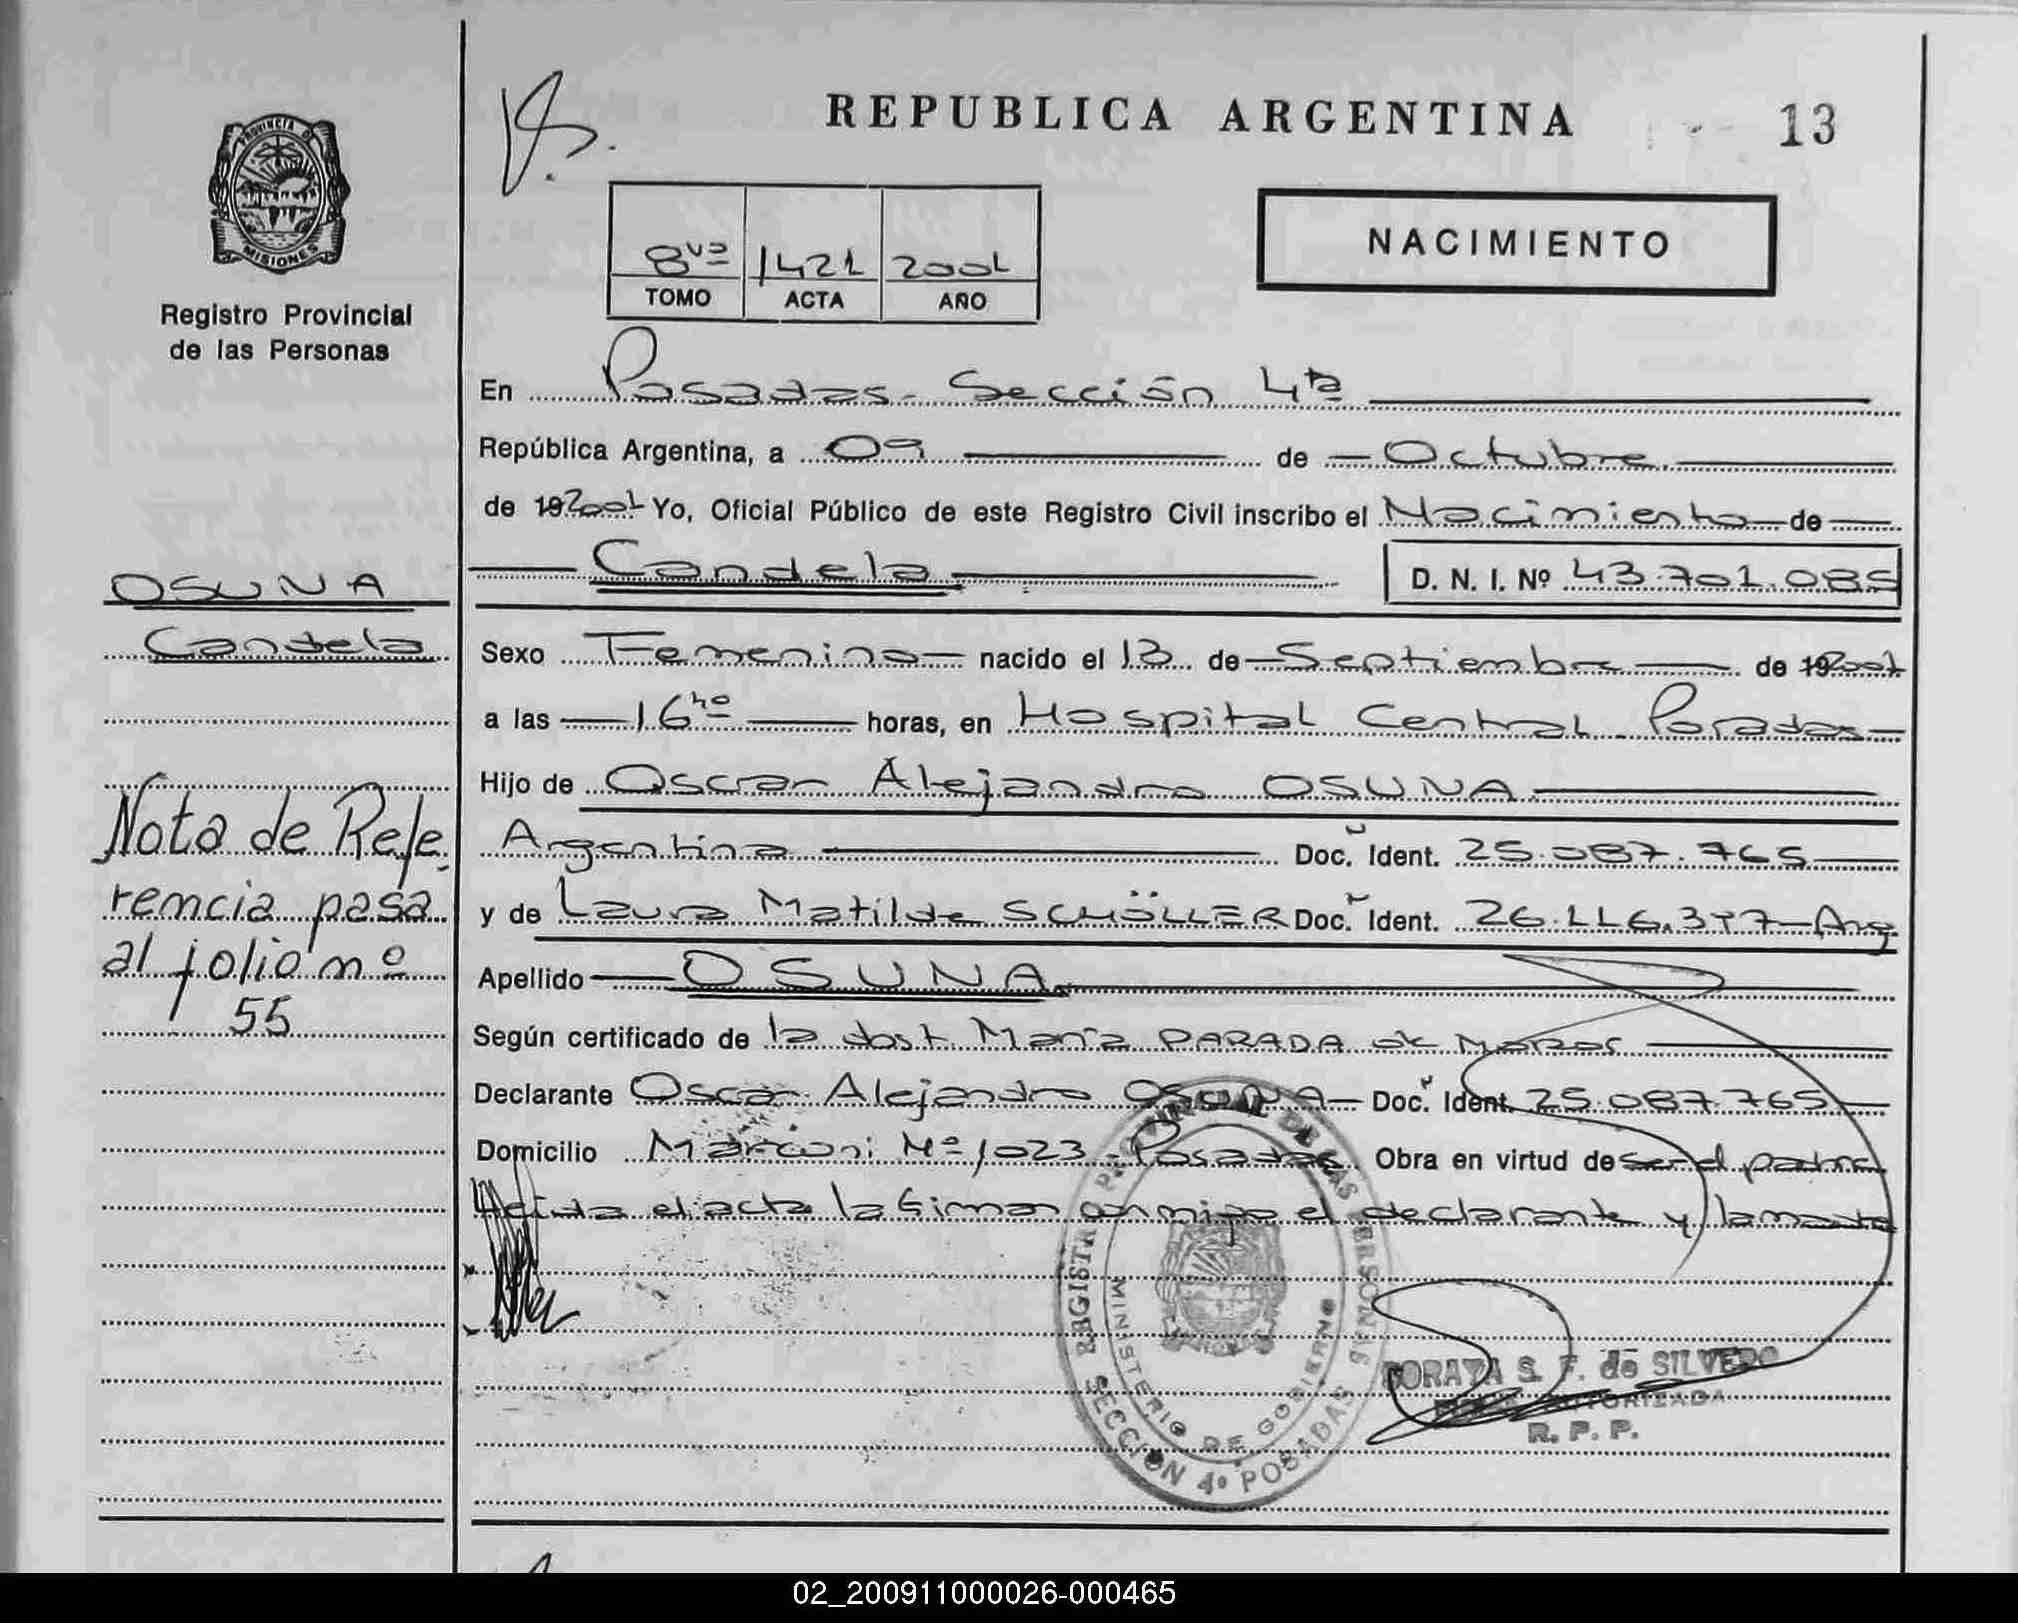 REPUBLICA ARGENTINA
13
PROVINCIA DE
MISIONES
Registro Provincial
de las Personas
8va 1421 2001
TOMO ACTA AÑO
NACIMIENTO
En Posadas - Sección 4ta
República Argentina, a 09 de Octubre
de 192001 Yo, Oficial Público de este Registro Civil inscribo el Nacimiento de
Candela D. N. I. Nº 43.701.085
OSUNA
Candela
Sexo Femenino nacido el 13 de Septiembre de 192001
a las 16 hs horas, en Hospital Central Posadas
Hijo de Oscar Alejandro OSUNA
Argentina Doc. Ident. 25.087.765
y de Laura Matilde SCHÖLLER Doc. Ident. 26.116.377 - Arg
Apellido OSUNA
Según certificado de la dost. María PARADA de
Declarante Oscar Alejandro OSUNA Doc. Ident. 25.087.765
Domicilio Marconi Nº 1023 - Posadas Obra en virtud de ser el padre
Leída el acta la firman conmigo el declarante y la madre
Nota de Refe
rencia pasa
al folio nº
55
REGISTRO PROVINCIAL DE LAS PERSONAS
MINISTERIO DE GOBIERNO
SECCION 4º POSADAS
SORAYA S. F. de SILVERO
AUTORIZADA
R. P. P.
02_200911000026-000465